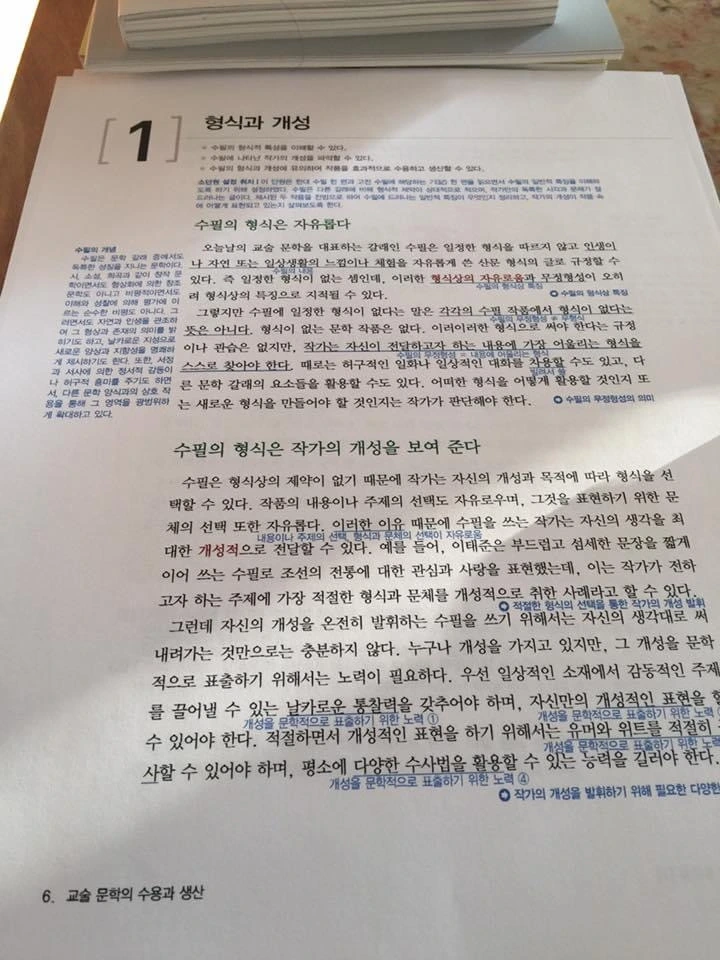 [1] 형식과 개성
수필의 형식적 특성을 이해할 수 있다.
수필에 나타난 작가의 개성을 파악할 수 있다.
수필의 형식과 개성에 유의하여 작품을 효과적으로 수용하고 생산할 수 있다.
소단원 설정 취지 | 이 단원은 현대 수필 한 편과 고전 수필에 해당하는 기(記) 한 편을 읽으면서 수필의 일반적 특징을 이해하
도록 하기 위해 설정하였다. 수필은 다른 갈래에 비해 형식적 제약이 상대적으로 적으며, 작가만의 독특한 시각과 문체가 잘
드러나는 글이다. 제시된 두 작품을 바탕으로 하여 수필에 드러나는 일반적 특징이 무엇인지 정리하고, 작가의 개성이 작품 속
에 어떻게 표현되고 있는지 살펴보도록 한다.
수필의 형식은 자유롭다
오늘날의 교술 문학을 대표하는 갈래인 수필은 일정한 형식을 따르지 않고 인생이
나 자연 또는 일상생활의 느낌이나 체험을 자유롭게 쓴 산문 형식의 글로 규정할 수
수필의 내용
있다. 즉 일정한 형식이 없는 셈인데, 이러한 형식상의 자유로움과 무정형성이 오히
수필의 형식상 특징
려 형식상의 특징으로 지적될 수 있다.
수필의 형식상 특징
그렇지만 수필에 일정한 형식이 없다는 말은 각각의 수필 작품에서 형식이 없다는
수필의 무정형성 ≠ 무형식
뜻은 아니다. 형식이 없는 문학 작품은 없다. 이러이러한 형식으로 써야 한다는 규정
이나 관습은 없지만, 작가는 자신이 전달하고자 하는 내용에 가장 어울리는 형식을
수필의 무정형성 = 내용에 어울리는 형식
스스로 찾아야 한다. 때로는 허구적인 일화나 일상적인 대화를 차용할 수도 있고, 다
빌려서 씀
른 문학 갈래의 요소들을 활용할 수도 있다. 어떠한 형식을 어떻게 활용할 것인지 또
는 새로운 형식을 만들어야 할 것인지는 작가가 판단해야 한다.
수필의 무정형성의 의미
수필의 개념
수필은 문학 갈래 중에서도
독특한 성질을 지니는 문학이다.
시, 소설, 희곡과 같이 창작 문
학이면서도 형상화에 의한 창조
문학도 아니고 비평적이면서도
이해와 성찰에 의해 평가에 이
르는 순수한 비평도 아니다. 그
러면서도 자연과 인생을 관조하
여 그 형상과 존재의 의미를 밝
히기도 하고, 날카로운 지성으로
새로운 양상과 지향성을 명쾌하
게 제시하기도 한다. 또한, 서정
과 서사에 의한 정서적 감동이
나 허구적 흥미를 주기도 하면
서, 다른 문학 양식과의 상호 작
용을 통해 그 영역을 광범위하
게 확대하고 있다.
수필의 형식은 작가의 개성을 보여 준다
수필은 형식상의 제약이 없기 때문에 작가는 자신의 개성과 목적에 따라 형식을 선
택할 수 있다. 작품의 내용이나 주제의 선택도 자유로우며, 그것을 표현하기 위한 문
체의 선택 또한 자유롭다. 이러한 이유 때문에 수필을 쓰는 작가는 자신의 생각을 최
내용이나 주제의 선택, 형식과 문체의 선택이 자유로움
대한 개성적으로 전달할 수 있다. 예를 들어, 이태준은 부드럽고 섬세한 문장을 짧게
이어 쓰는 수필로 조선의 전통에 대한 관심과 사랑을 표현했는데, 이는 작가가 전하
고자 하는 주제에 가장 적절한 형식과 문체를 개성적으로 취한 사례라고 할 수 있다.
적절한 형식의 선택을 통한 작가의 개성 발휘
그런데 자신의 개성을 온전히 발휘하는 수필을 쓰기 위해서는 자신의 생각대로 써
내려가는 것만으로는 충분하지 않다. 누구나 개성을 가지고 있지만, 그 개성을 문학
적으로 표출하기 위해서는 노력이 필요하다. 우선 일상적인 소재에서 감동적인 주제
를 끌어낼 수 있는 날카로운 통찰력을 갖추어야 하며, 자신만의 개성적인 표현을 할
개성을 문학적으로 표출하기 위한 노력 ① 개성을 문학적으로 표출하기 위한 노력
수 있어야 한다. 적절하면서 개성적인 표현을 하기 위해서는 유머와 위트를 적절히
개성을 문학적으로 표출하기 위한 노력
사할 수 있어야 하며, 평소에 다양한 수사법을 활용할 수 있는 능력을 길러야 한다.
개성을 문학적으로 표출하기 위한 노력 ④
작가의 개성을 발휘하기 위해 필요한 다양한
6. 교술 문학의 수용과 생산